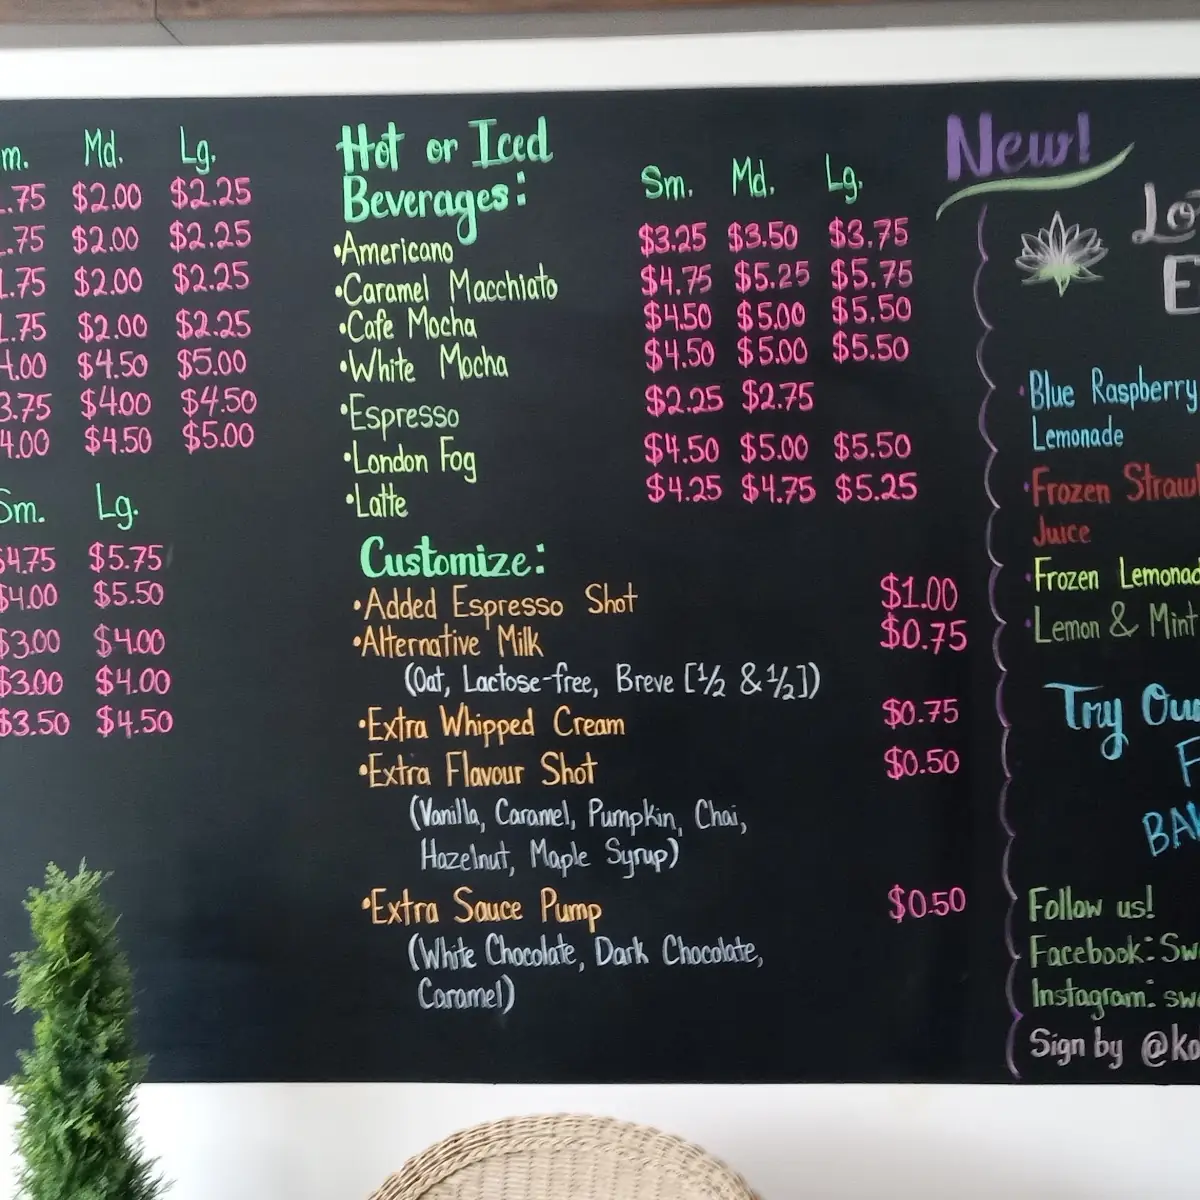 Md. Lg.
.75 $2.00 $2.25
.75 $2.00 $2.25
1.75 $2.00 $2.25
1.75 $2.00 $2.25
4.00 $4.50 $5.00
3.75 $4.00 $4.50
4.00 $4.50 $5.00
Sm. Lg.
$4.75 $5.75
$4.00 $5.50
$3.00 $4.00
$3.00 $4.00
$3.50 $4.50
Hot or Iced
Beverages:
Sm. Md. Lg.
•Americano $3.25 $3.50 $3.75
•Caramel Macchiato $4.75 $5.25 $5.75
•Cafe Mocha $4.50 $5.00 $5.50
•White Mocha $4.50 $5.00 $5.50
•Espresso $2.25 $2.75
•London Fog $4.50 $5.00 $5.50
•Latte $4.25 $4.75 $5.25
Customize:
•Added Espresso Shot $1.00
•Alternative Milk $0.75
(Oat, Lactose-free, Breve [½ & ½])
•Extra Whipped Cream $0.75
•Extra Flavour Shot $0.50
(Vanilla, Caramel, Pumpkin, Chai,
Hazelnut, Maple Syrup)
•Extra Sauce Pump $0.50
(White Chocolate, Dark Chocolate,
Caramel)
New!
•Blue Raspberry
Lemonade
•Frozen
Juice
•Frozen
•Lemon & Mint
Try
Follow us!
Facebook:
Instagram:
Sign by